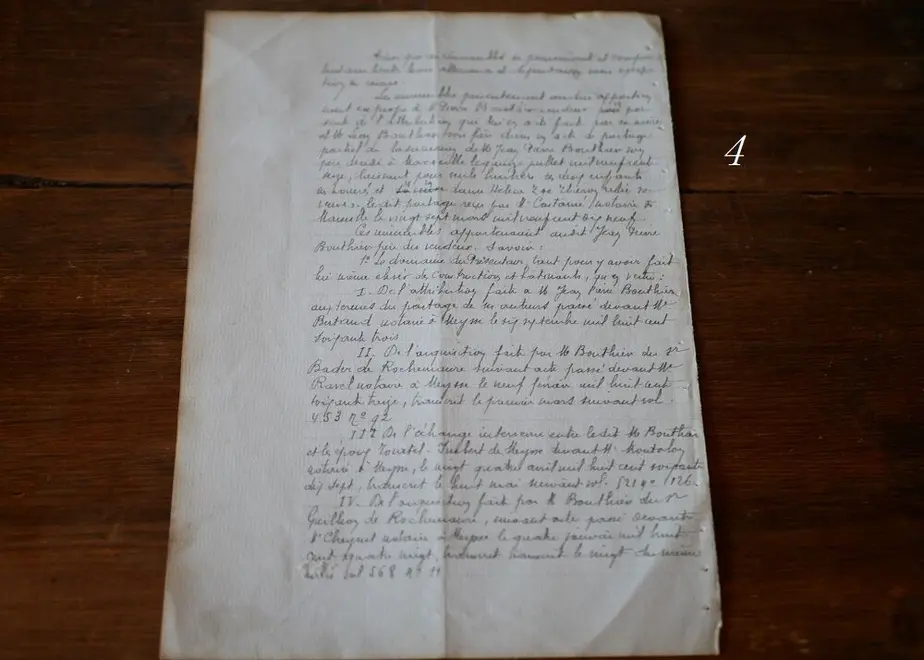 Ainsi que ces immeubles se poursuivent et comportent
Les immeubles présentement vendus appartien
nent en propre à M Pierre Bouthier vendeur
de l'attribution qui lui en a été fait par
et M Léon Bouthier son frère dans un acte de partage
partiel de la succession de M Jean Pierre Bouthier son
père décédé à Marseille le quinze juillet mil neuf cent
seize, laissant pour seuls héritiers ses deux enfants
sa veuve, ledit partage reçu par Me Castanié, notaire à
Marseille le vingt sept mars mil neuf cent dix neuf
Ces immeubles appartenaient audit Jean Pierre
Bouthier père du vendeur. Savoir :
1° Le domaine du tant pour y avoir fait
lui même élever des constructions et batiments, qu'en vertu :
I. De l'attribution fait à M Jean Pierre Bouthier
aux termes du partage de ses auteurs passé devant Me
Bertrand notaire à Meysse le six septembre mil huit cent
soixante trois
II. De l'acquisition fait par M Bouthier du Sr
Bader de Rochemaure suivant acte passé devant Me
Ravel notaire à Meysse le neuf février mil huit cent
soixante treize, transcrit le premier mars suivant vol.
453 n° 92
III° De l'échange intervenu entre ledit M Bouthier
et les époux Tourtet - Imbert de Meysse devant Me Montalon
notaire à Meysse, le vingt quatre avril mil huit cent soixante
dix sept, transcrit le huit mai suivant vol. 521 n° 126.
IV. De l'acquisition fait par M Bouthier du Sr
Guilhon de Rochemaure, suivant acte passé devant
Me notaire à Meysse le quatre janvier mil huit
cent quatre vingt, transcrit le vingt du même
vol 568 n° 11
4